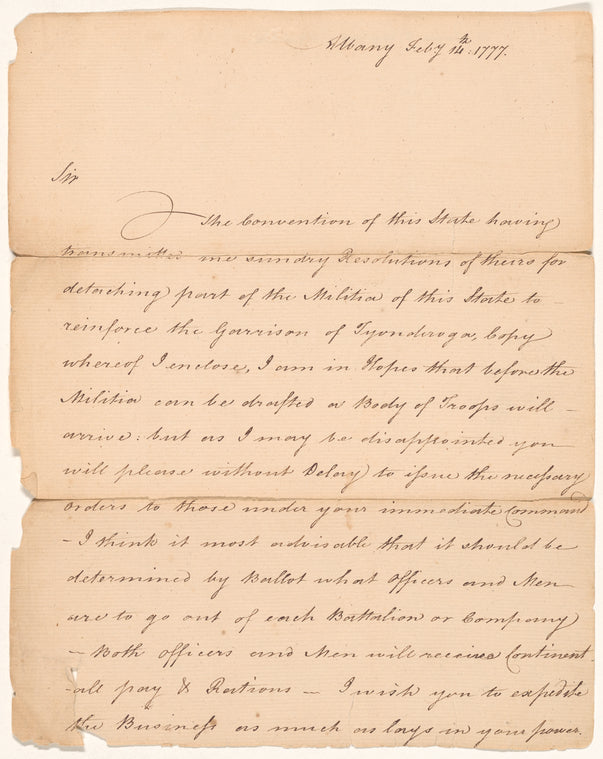 Albany Feby 14th: 1777.
Sir
The Convention of this State having
transmitted me sundry Resolutions of theirs for
detaching part of the Militia of this State to
reinforce the Garrison of Tyonderoga, Copy
whereof I enclose, I am in Hopes that before the
Militia can be drafted a Body of Troops will
arrive: but as I may be disappointed you
will please without Delay to issue the necessary
orders to those under your immediate Command
- I think it most advisable that it should be
determined by Ballot what Officers and Men
are to go out of each Battalion or Company
- Both Officers and Men will receive Continent
-all pay & Rations - I wish you to expedite
the Business as much as lays in your power.